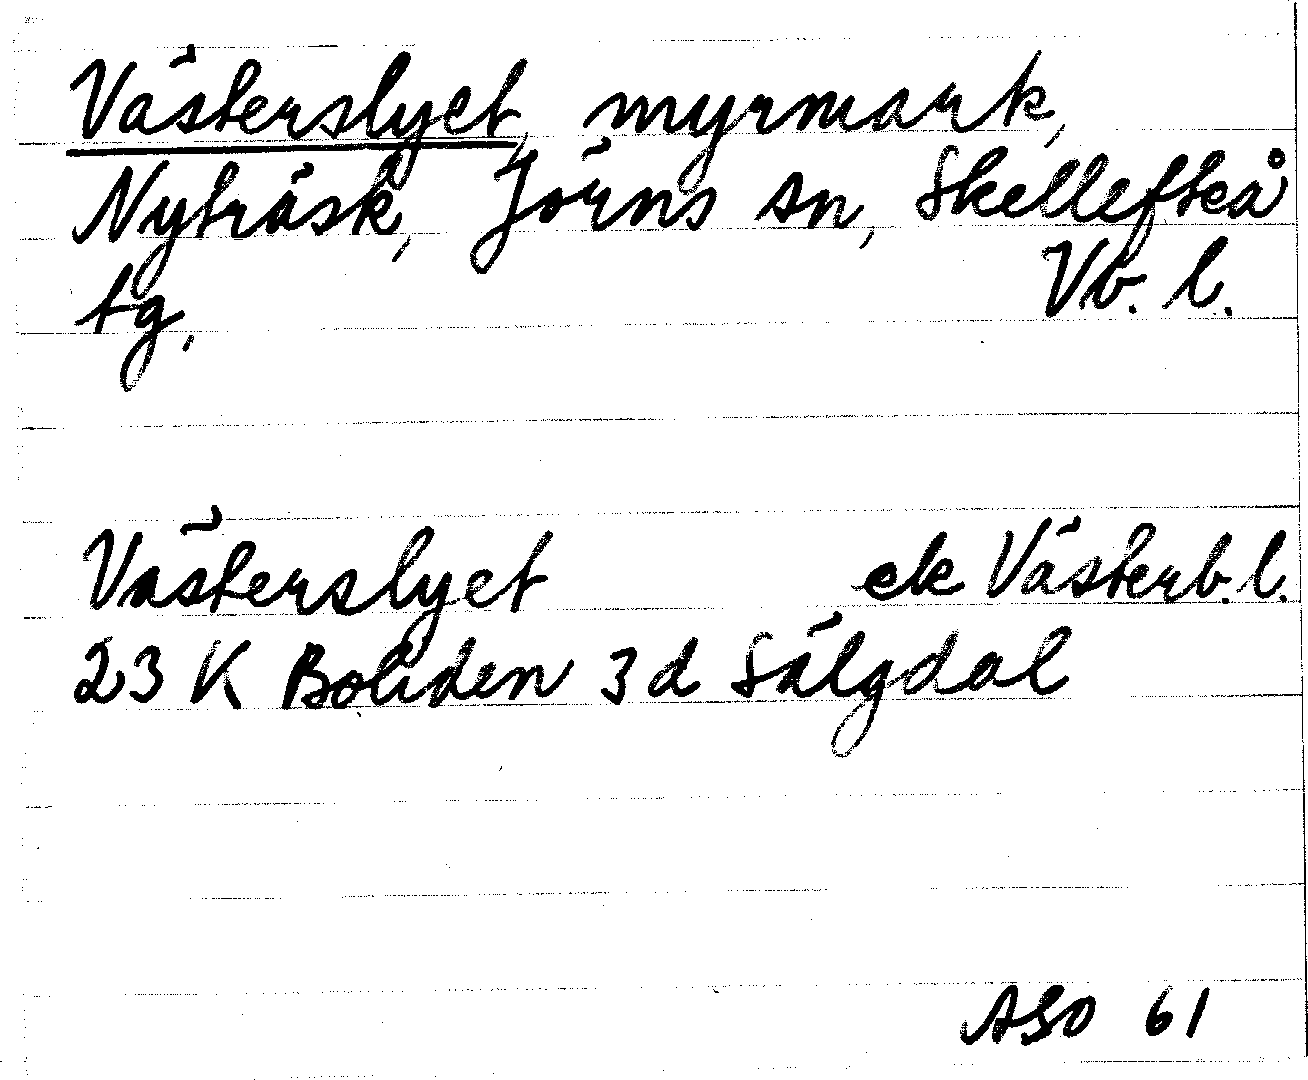 Västerslyet, myrmark,
Nyträsk, Jörns sn, Skellefteå
tg, Vb. l.
Västerslyet ek Västerb. l.
23 K Boliden 3 d Sälgdal
ASO 61